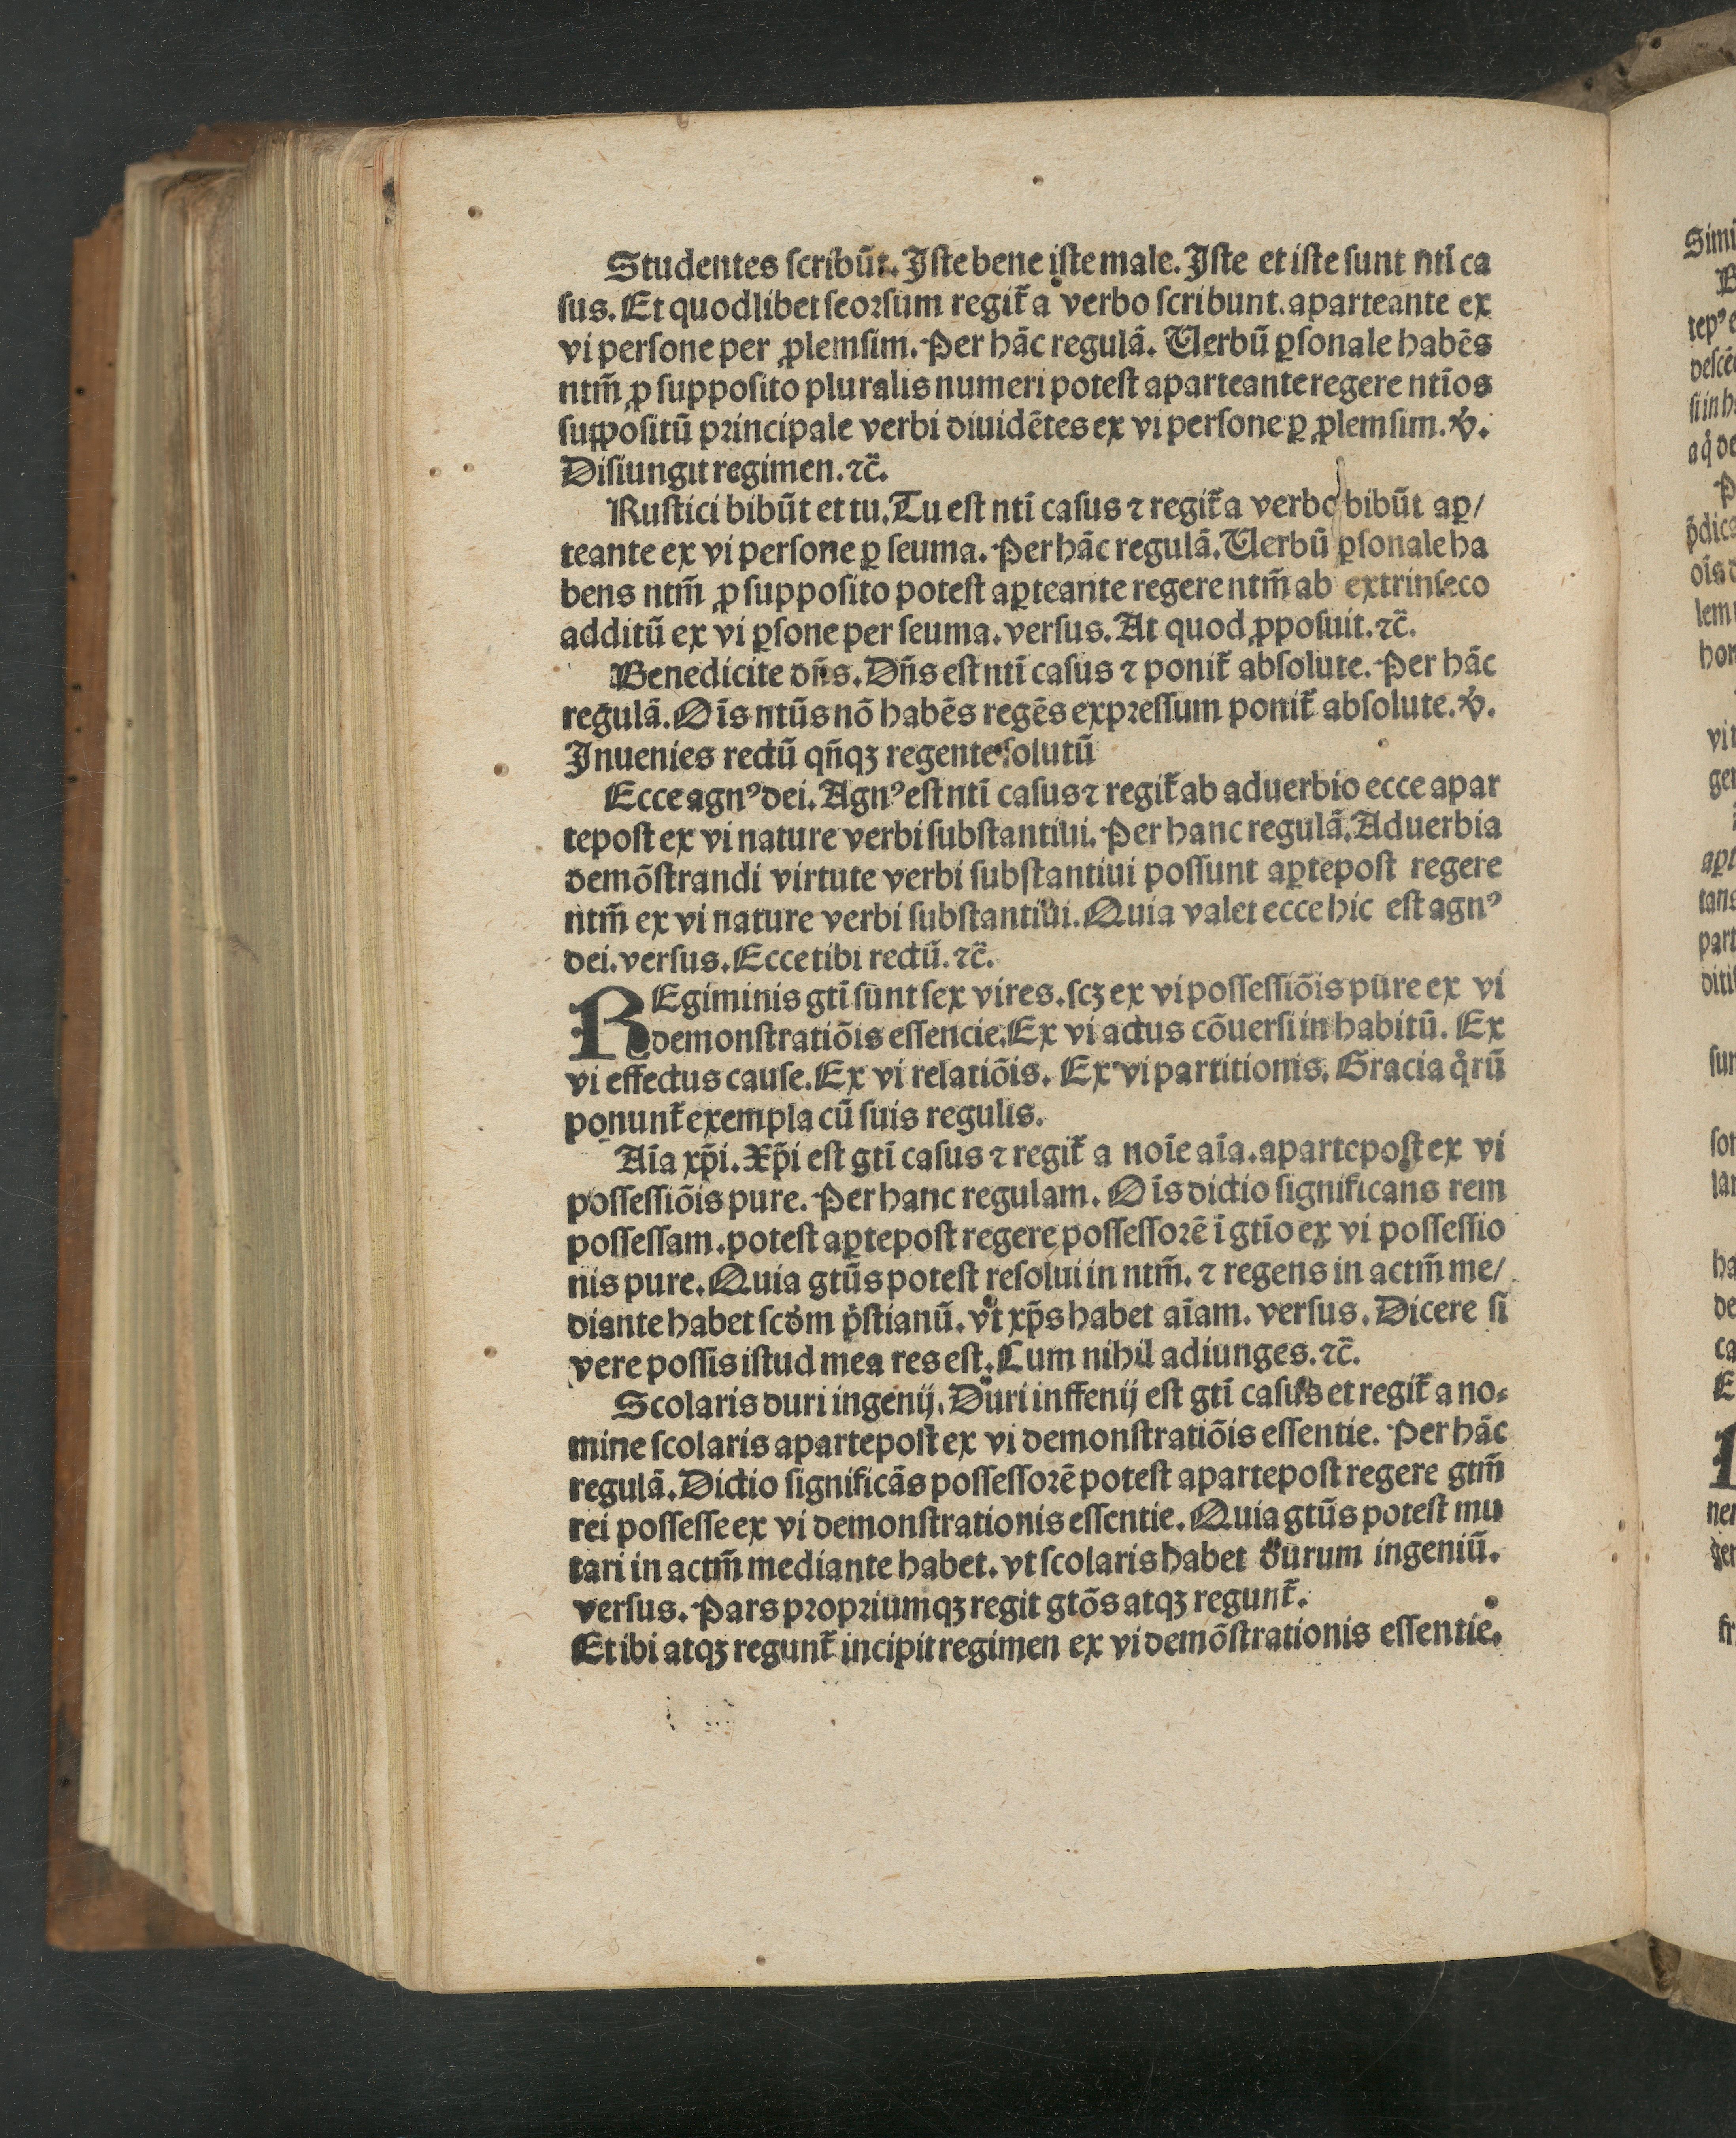 Studentes ſcribūt. Iſte bene iſte male. Iſte et iſte ſunt ntī ca
ſus. Et quodlibet ſeorſum regit̃ a verbo ſcribunt. aparteante ex
vi perſone per ꝓlemſim. Per hāc regulā. Uerbū ꝑſonale habēs
ntm̄ ꝓ ſuppoſito pluralis numeri poteſt aparteante regere ntīos
ſuppoſitū principale verbi diuidētes ex vi perſone ꝑ ꝓlemſim. ꝟ.
Diſiungit regimen. ⁊c̄.
Ruſtici bibūt et tu. Tu eſt ntī caſus ⁊ regit̃ a verbo bibūt aꝑ/
teante ex vi perſone ꝑ ſeuma. Per hāc regulā. Uerbū ꝑſonale ha
bens ntm̄ ꝓ ſuppoſito poteſt aꝑteante regere ntm̄ ab extrinſeco
additū ex vi ꝑſone per ſeuma. verſus. At quod ꝓpoſuit. ⁊c̄.
Benedicite dn̄s. Dn̄s eſt ntī caſus ⁊ ponit̃ abſolute. Per hāc
regulā. Oīs ntūs nō habēs regēs expreſſum ponit̃ abſolute. ꝟ.
Inuenies rectū qn̄qꝫ regente ſolutū
Ecce agnꝰ dei. Agnꝰ eſt ntī caſus ⁊ regit̃ ab aduerbio ecce apar
tepoſt ex vi nature verbi ſubſtantiui. Per hanc regulā. Aduerbia
demōſtrandi virtute verbi ſubſtantiui poſſunt aꝑtepoſt regere
ntm̄ ex vi nature verbi ſubſtantiui. Quia valet ecce hic eſt agnꝰ
dei. verſus. Ecce tibi rectū. ⁊c̄.
REgiminis gtī ſunt ſex vires. ſcꝫ ex vi poſſeſſiōis pure ex vi
demonſtratiōis eſſencie. Ex vi actus cōuerſi in habitū. Ex
vi effectus cauſe. Ex vi relatiōis. Ex vi partitionis. Gracia qͦrū
ponunt̃ exempla cū ſuis regulis.
Aīa xp̄i. Xp̄i eſt gtī caſus ⁊ regit̃ a noīe aīa. apartepoſt ex vi
poſſeſſiōis pure. Per hanc regulam. Oīs dictio ſignificans rem
poſſeſſam. poteſt aꝑtepoſt regere poſſeſſorē ī gtīo ex vi poſſeſſio
nis pure. Quia gtūs poteſt reſolui in ntm̄. ⁊ regens in actm̄ me/
diante habet ſcdm pͥſtianū. vt xp̄s habet aīam. verſus. Dicere ſi
vere poſſis iſtud mea res eſt. Cum nihil adiunges. ⁊c̄.
Scolaris duri ingenij. Duri inffenij eſt gtī caſus et regit̃ a no⸗
mine ſcolaris apartepoſt ex vi demonſtratiōis eſſentie. Per hāc
regulā. Dictio ſignificās poſſeſſorē poteſt apartepoſt regere gtm̄
rei poſſeſſe ex vi demonſtrationis eſſentie. Quia gtūs poteſt mu
tari in actm̄ mediante habet. vt ſcolaris habet durum ingeniū.
verſus. Pars propriumqꝫ regit gtōs atqꝫ regunt̃.
Et ibi atqꝫ regunt̃ incipit regimen ex vi demōſtrationis eſſentie.